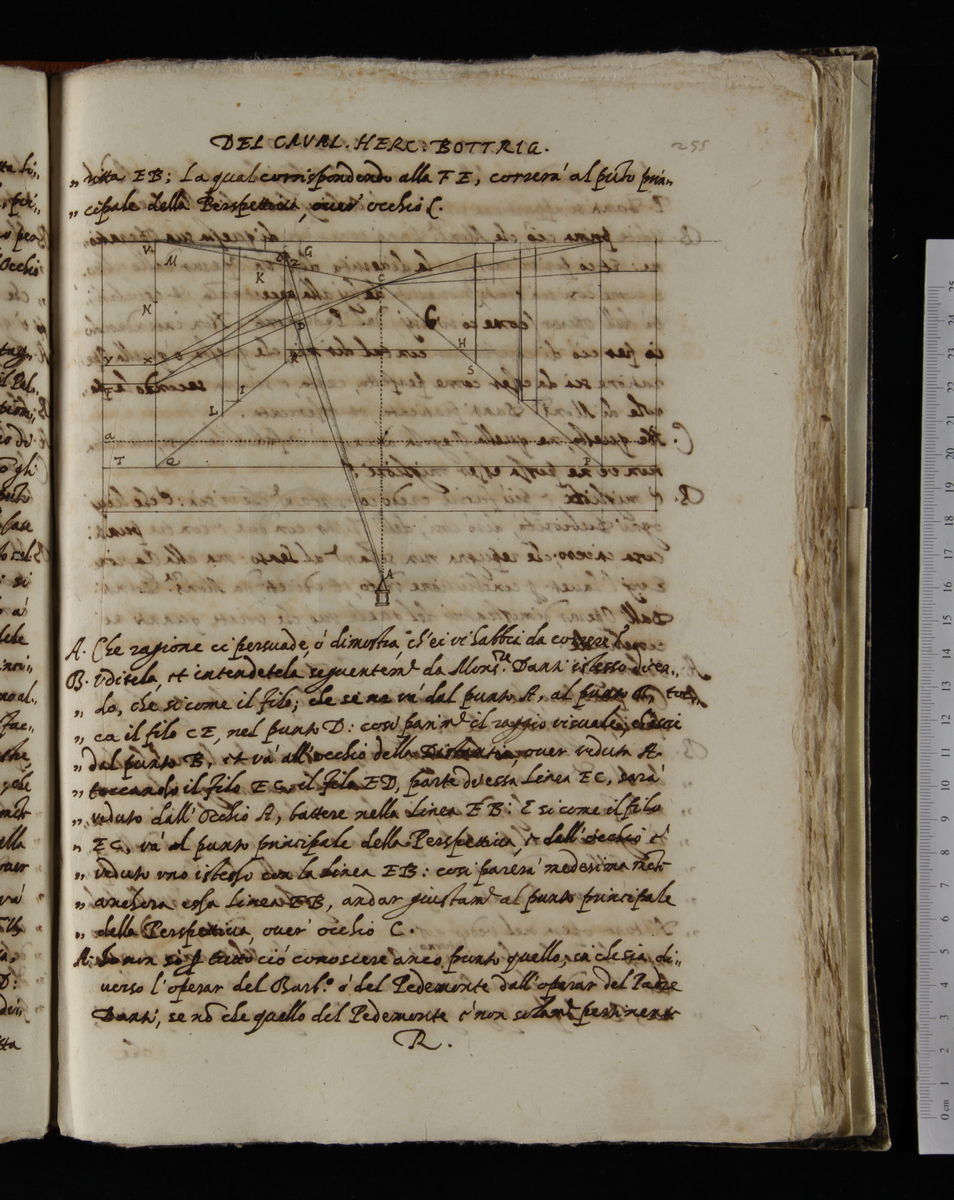 DEL CAVAL. HERC: BOTTRIG.
255
„ detta EB: La qual corrispondendo alla FE, correrà al pũto prin-
„ cipale della Perspettiva, over' occhio C.
V M G Z
K C
N
D
Y X R H
S
I
L
a
T Q P
A
A. Che ragione ci persuade, ò dimostra, ch'ei vi habbia da correre?
B. Vditela, et intendetela seguentemẽ. da Mons.re Danti istesso dicen..
„ do, che si come il filo; che se ne và dal punto A, al punto B, toc,
„ ca il filo CE, nel punto D: così parimẽ. il raggio visuale,
„ dal punto B, et và all'occhio della Distantia, over veduta A.
„ toccando il filo EC, il filo ED, parte di essa linea EC, sarà
„ veduto dall'occhio A, battere nella linea EB: E si come il filo
„ EC, và al punto principale della Perspettiva, et dell'occhio è
„ veduto uno istesso con la linea EB: così parerà medesimamẽt
„ anchora essa linea EB, andar giustamẽ. al punto principale
„ della Perspettiva, over' occhio C.
A. Io non so ꝑ tutto ciò conoscere anco punto quello, in che sia di..
verso l'operar del Barb.o ò del Pedemonte dall'operar del Padre
Danti, se nõ che quello del Pedemonte è non solamẽ. pertinente
R.